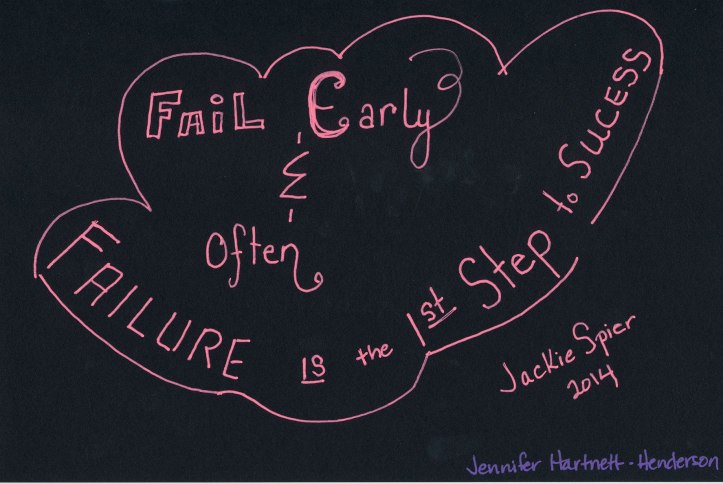 FAiL Early
&
Often
FAILURE IS the 1st Step to SUCESS
Jackie Spier
2014
Jennifer Hartnett-Henderson